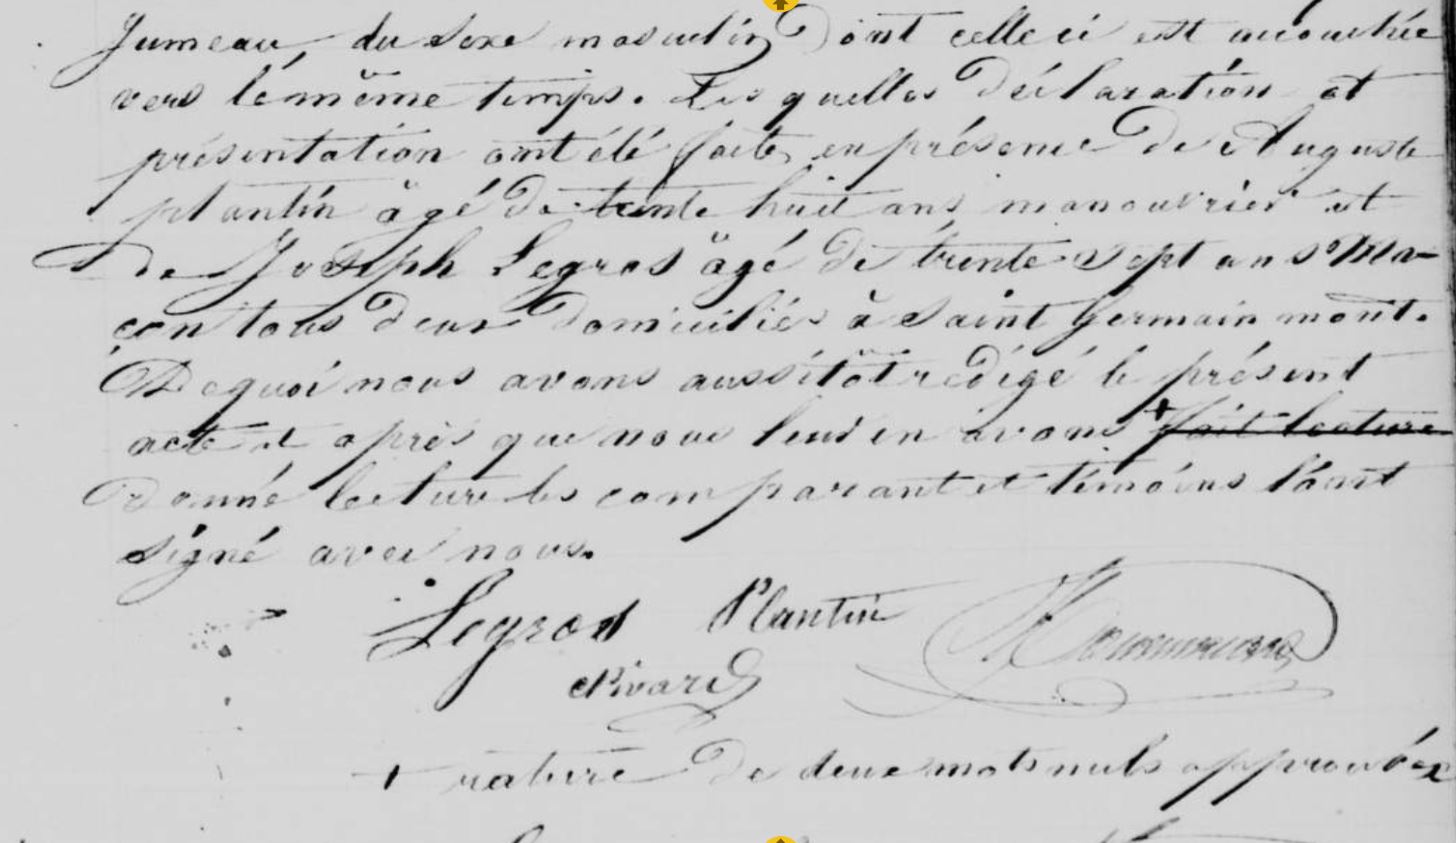 Jumeau, du sexe masculin Dont celle ci est accouchée
vers le même temps. Les quelles Déclaration et
présentation ont été faites en présence De Auguste
plantin âgé De trente huit ans manouvrier et
De Joseph Legros âgé De trente sept ans Ma-
çon tous deux Domiciliés à Saint Germainmont.
De quoi nous avons aussitôt rédigé le présent
acte et après que nous leur en avons + fait lecture
Donné lecture les comparant et témoins l'ont
signé avec nous.
Legros Plantin
Pivard
+ rature De deux mots nuls approuvée